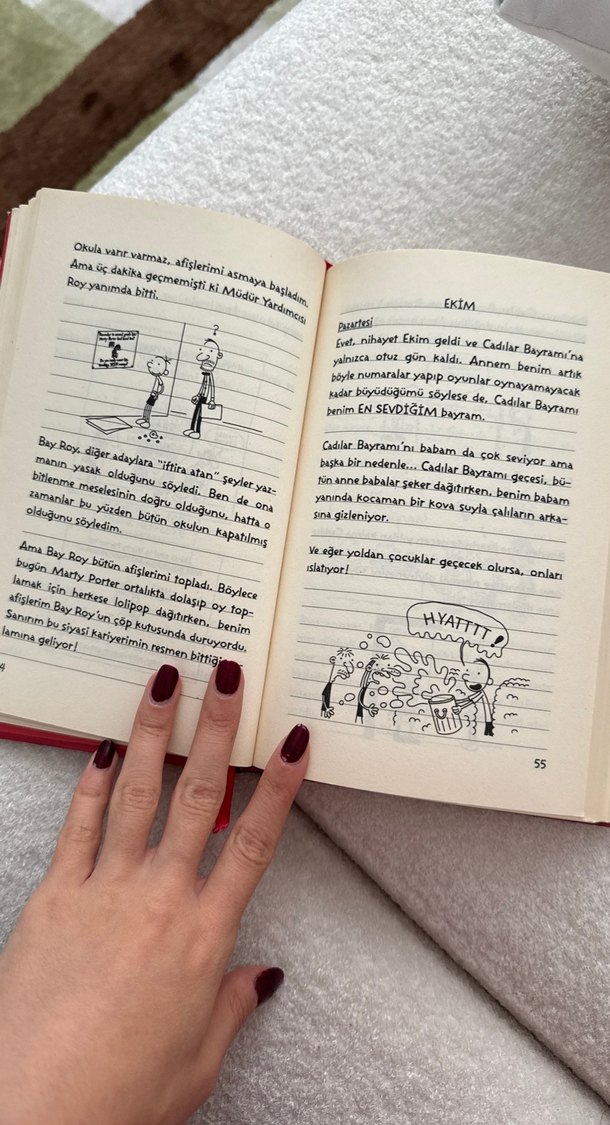 Okula varır varmaz, afişlerimi asmaya başladım.
Ama üç dakika geçmemişti ki Müdür Yardımcısı
Roy yanımda bitti.
?
Bay Roy, diğer adaylara "iftira atan" şeyler yaz-
manın yasak olduğunu söyledi. Ben de ona
bitlenme meselesinin doğru olduğunu, hatta o
zamanlar bu yüzden bütün okulun kapatılmış
olduğunu söyledim.
Ama Bay Roy bütün afişlerimi topladı. Böylece
bugün Marty Porter ortalıkta dolaşıp oy top-
lamak için herkese lolipop dağıtırken, benim
afişlerim Bay Roy'un çöp kutusunda duruyordu.
Sanırım bu siyasi kariyerimin resmen
lamına geliyor!
4
EKİM
Pazartesi
Evet, nihayet Ekim geldi ve Cadılar Bayramı'na
yalnızca otuz gün kaldı. Annem benim artık
böyle numaralar yapıp oyunlar oynayamayacak
kadar büyüdüğümü söylese de, Cadılar Bayramı
benim EN SEVDİĞİM bayram.
Cadılar Bayramı'nı babam da çok seviyor ama
başka bir nedenle... Cadılar Bayramı gecesi, bü-
tün anne babalar şeker dağıtırken, benim babam
yanında kocaman bir kova suyla çalıların arka-
sına gizleniyor.
Ve eğer yoldan çocuklar geçecek olursa, onları
ıslatıyor!
HYATTTT!
55